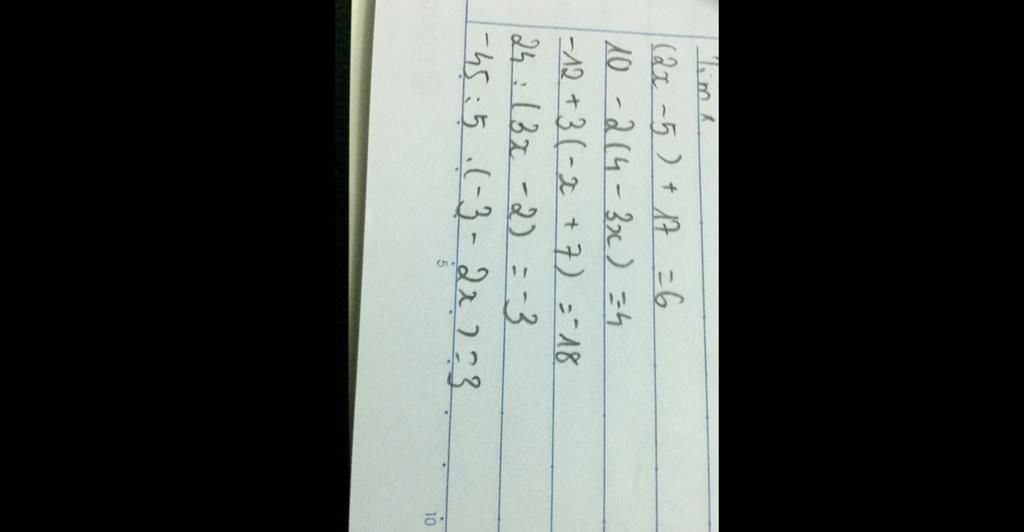 Tìm x
(2x - 5) + 17 = 6
10 - 2(4 - 3x) = -4
-12 + 3(-x + 7) = -18
24 : (3x - 2) = -3
-45 : 5 . (-3 - 2x) = 3
5
10